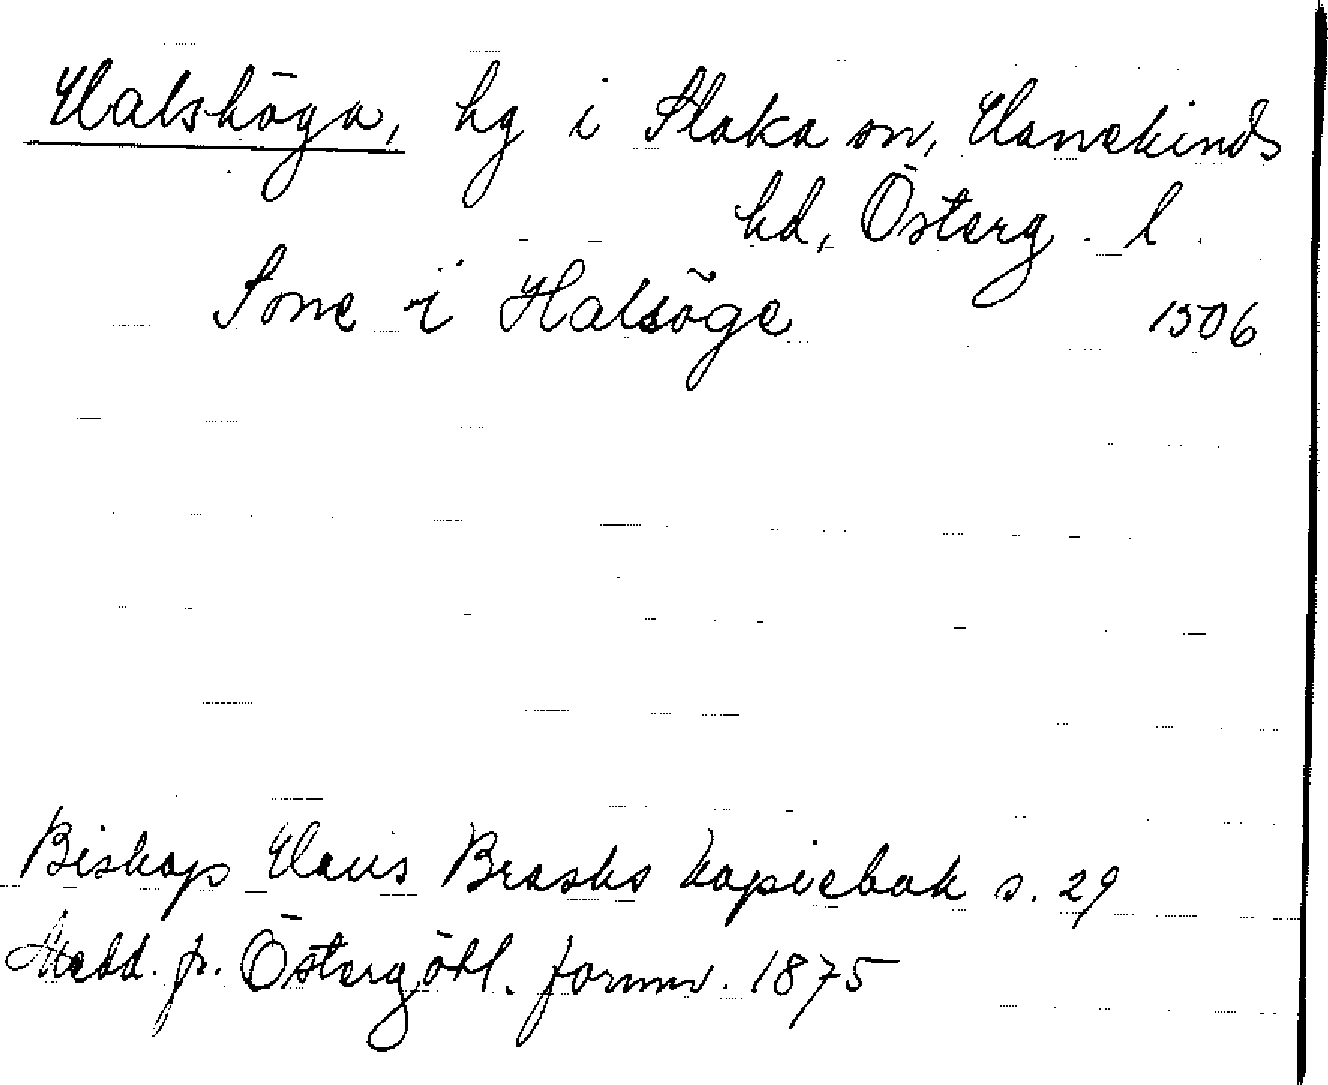 Halshöga, hg i Slaka sn, Hanekinds
hd, Österg. l.
Sone i Halsöge 1506
Biskop Hans Brasks kopiebok s. 29
Medd. fr. Östergötl. fornmv. 1875